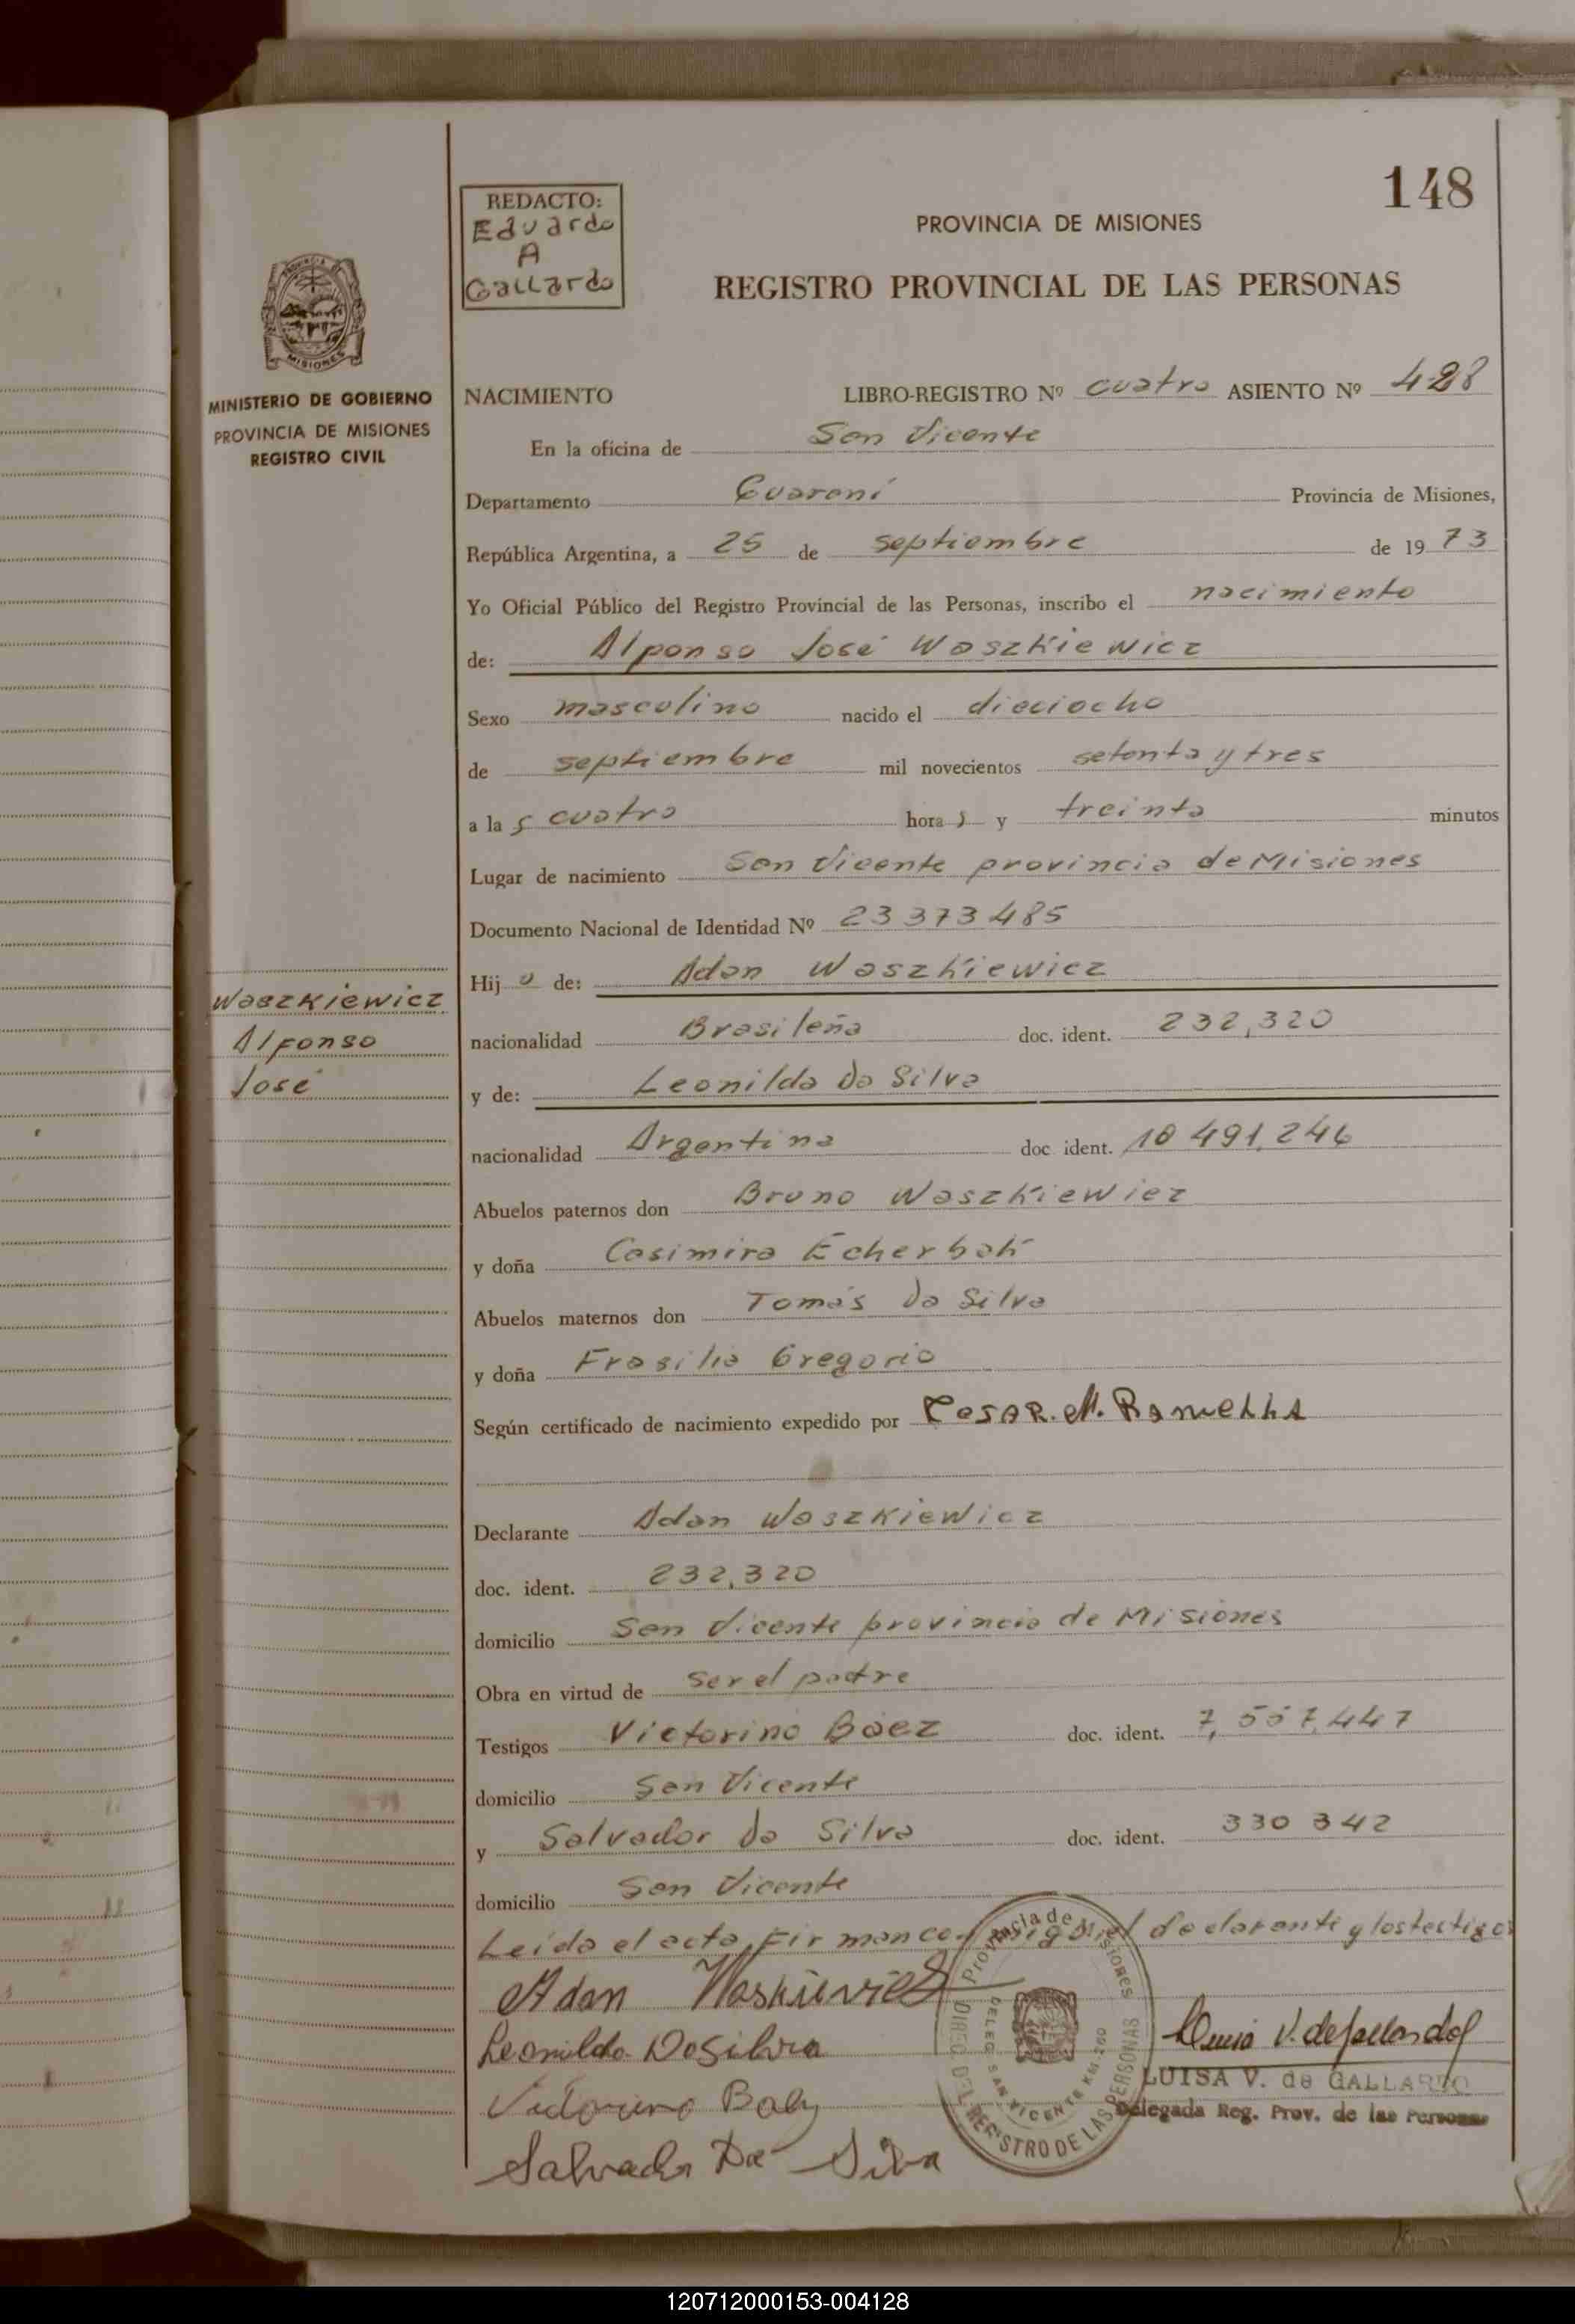 148
REDACTO:
Eduardo
A
Gallardo
PROVINCIA DE MISIONES
REGISTRO PROVINCIAL DE LAS PERSONAS
MINISTERIO DE GOBIERNO
PROVINCIA DE MISIONES
REGISTRO CIVIL
NACIMIENTO LIBRO-REGISTRO Nº cuatro ASIENTO Nº 428
En la oficina de San Vicente
Departamento Guaraní Provincia de Misiones,
República Argentina, a 25 de septiembre de 1973
Yo Oficial Público del Registro Provincial de las Personas, inscribo el nacimiento
de: Alponso José Waszkiewicz
Sexo masculino nacido el dieciocho
de septiembre mil novecientos setenta y tres
a las cuatro horas y treinta minutos
Lugar de nacimiento San Vicente provincia de Misiones
Documento Nacional de Identidad Nº 23 373 485
Hijo de: Adan Waszkiewicz
Waszkiewicz
Alfonso
José
nacionalidad Brasileña doc. ident. 232,320
y de: Leonilda Da Silva
nacionalidad Argentina doc ident. 10 491,246
Abuelos paternos don Bruno Waszkiewicz
y doña Casimira Echerbak
Abuelos maternos don Tomás Da Silva
y doña Frasilia Gregorio
Según certificado de nacimiento expedido por Cesar. M. Ramella
Declarante Adan Waszkiewicz
doc. ident. 232,320
domicilio San Vicente provincia de Misiones
Obra en virtud de ser el padre
Testigos Victorino Báez doc. ident. 7,557,447
domicilio San Vicente
y Salvador da Silva doc. ident. 330 342
domicilio San Vicente
Leída el acta, Firman conmigo el declarante y los testigos
Adan
Leonilda Da Silva
Salvador Da Silva
Provincia de Misiones
DIREC. DEL REGISTRO DE LAS PERSONAS
DELEG. SAN VICENTE KM. 260
Luisa V. de Gallardo
LUISA V. de GALLARDO
Delegada Reg. Prov. de las Personas
120712000153-004128